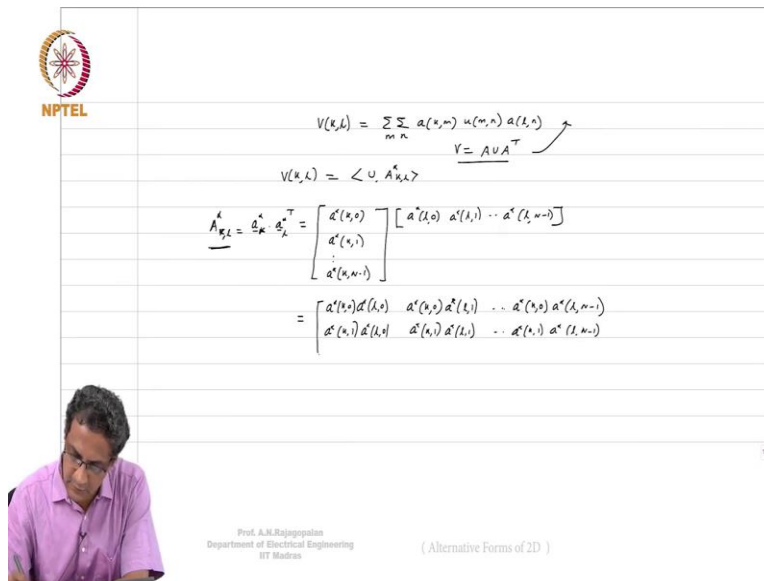 NPTEL
V(k,l) = ΣΣ a(k,m) u(m,n) a(l,n)
m n
V = AUA^T
V(k,l) = <U, A*k,l>
A*k,l = a*k · a*l^T = [a*(k,0) [a*(l,0) a*(l,1) .. a*(l,N-1)]
a*(k,1)
:
a*(k,N-1)]
= [a*(k,0)a*(l,0) a*(k,0)a*(l,1) .. a*(k,0) a*(l,N-1)
a*(k,1)a*(l,0) a*(k,1)a*(l,1) .. a*(k,1) a*(l,N-1)
Prof. A.N.Rajagopalan
Department of Electrical Engineering
IIT Madras
( Alternative Forms of 2D )